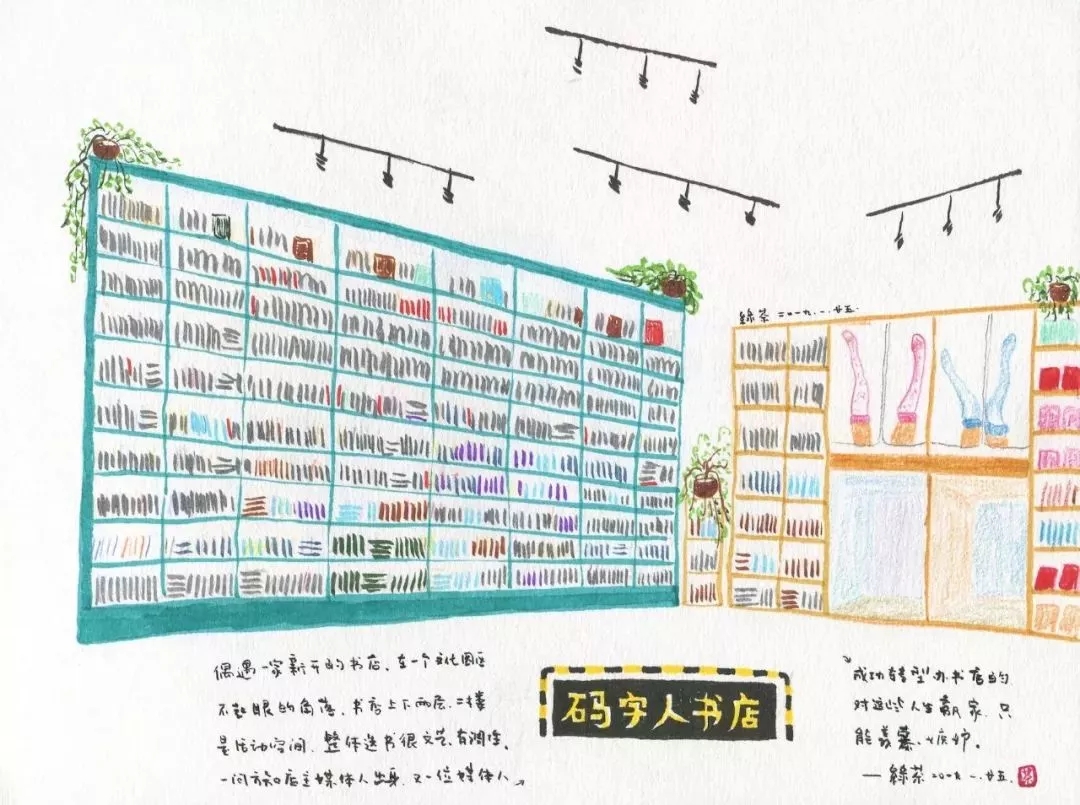 綠茶 二〇一九.一.廿五.
偶遇一家新开的书店、在一个文化园区
不起眼的角落、书店上下两层、二楼
是活动空间、整体选书很文艺、有调性。
一问方知店主媒体人出身、又一位媒体人
码字人书店
成功转型办书店的.
对这些人生赢家、只
能羡慕、嫉妒。
— 綠茶 二〇一九.一.廿五.